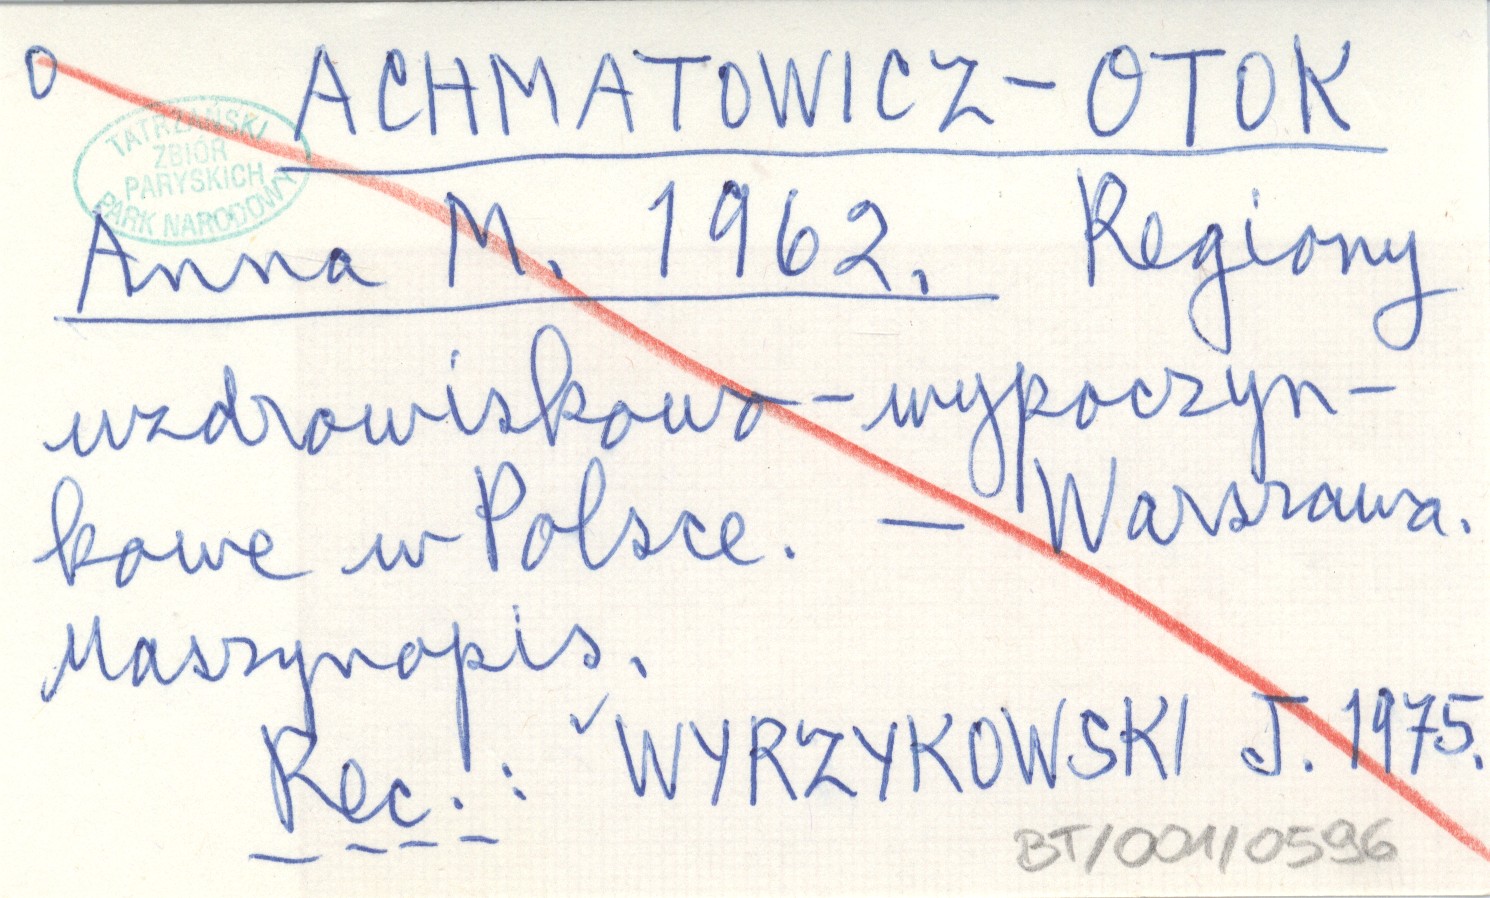 O ACHMATOWICZ-OTOK
TATRZAŃSKI
ZBIÓR
PARYSKICH
PARK NARODOWY
Anna M. 1962. Regiony
uzdrowiskowo-wypoczyn-
kowe w Polsce. — Warszawa.
Maszynopis.
Rec.: WYRZYKOWSKI J. 1975.
BT/001/0596